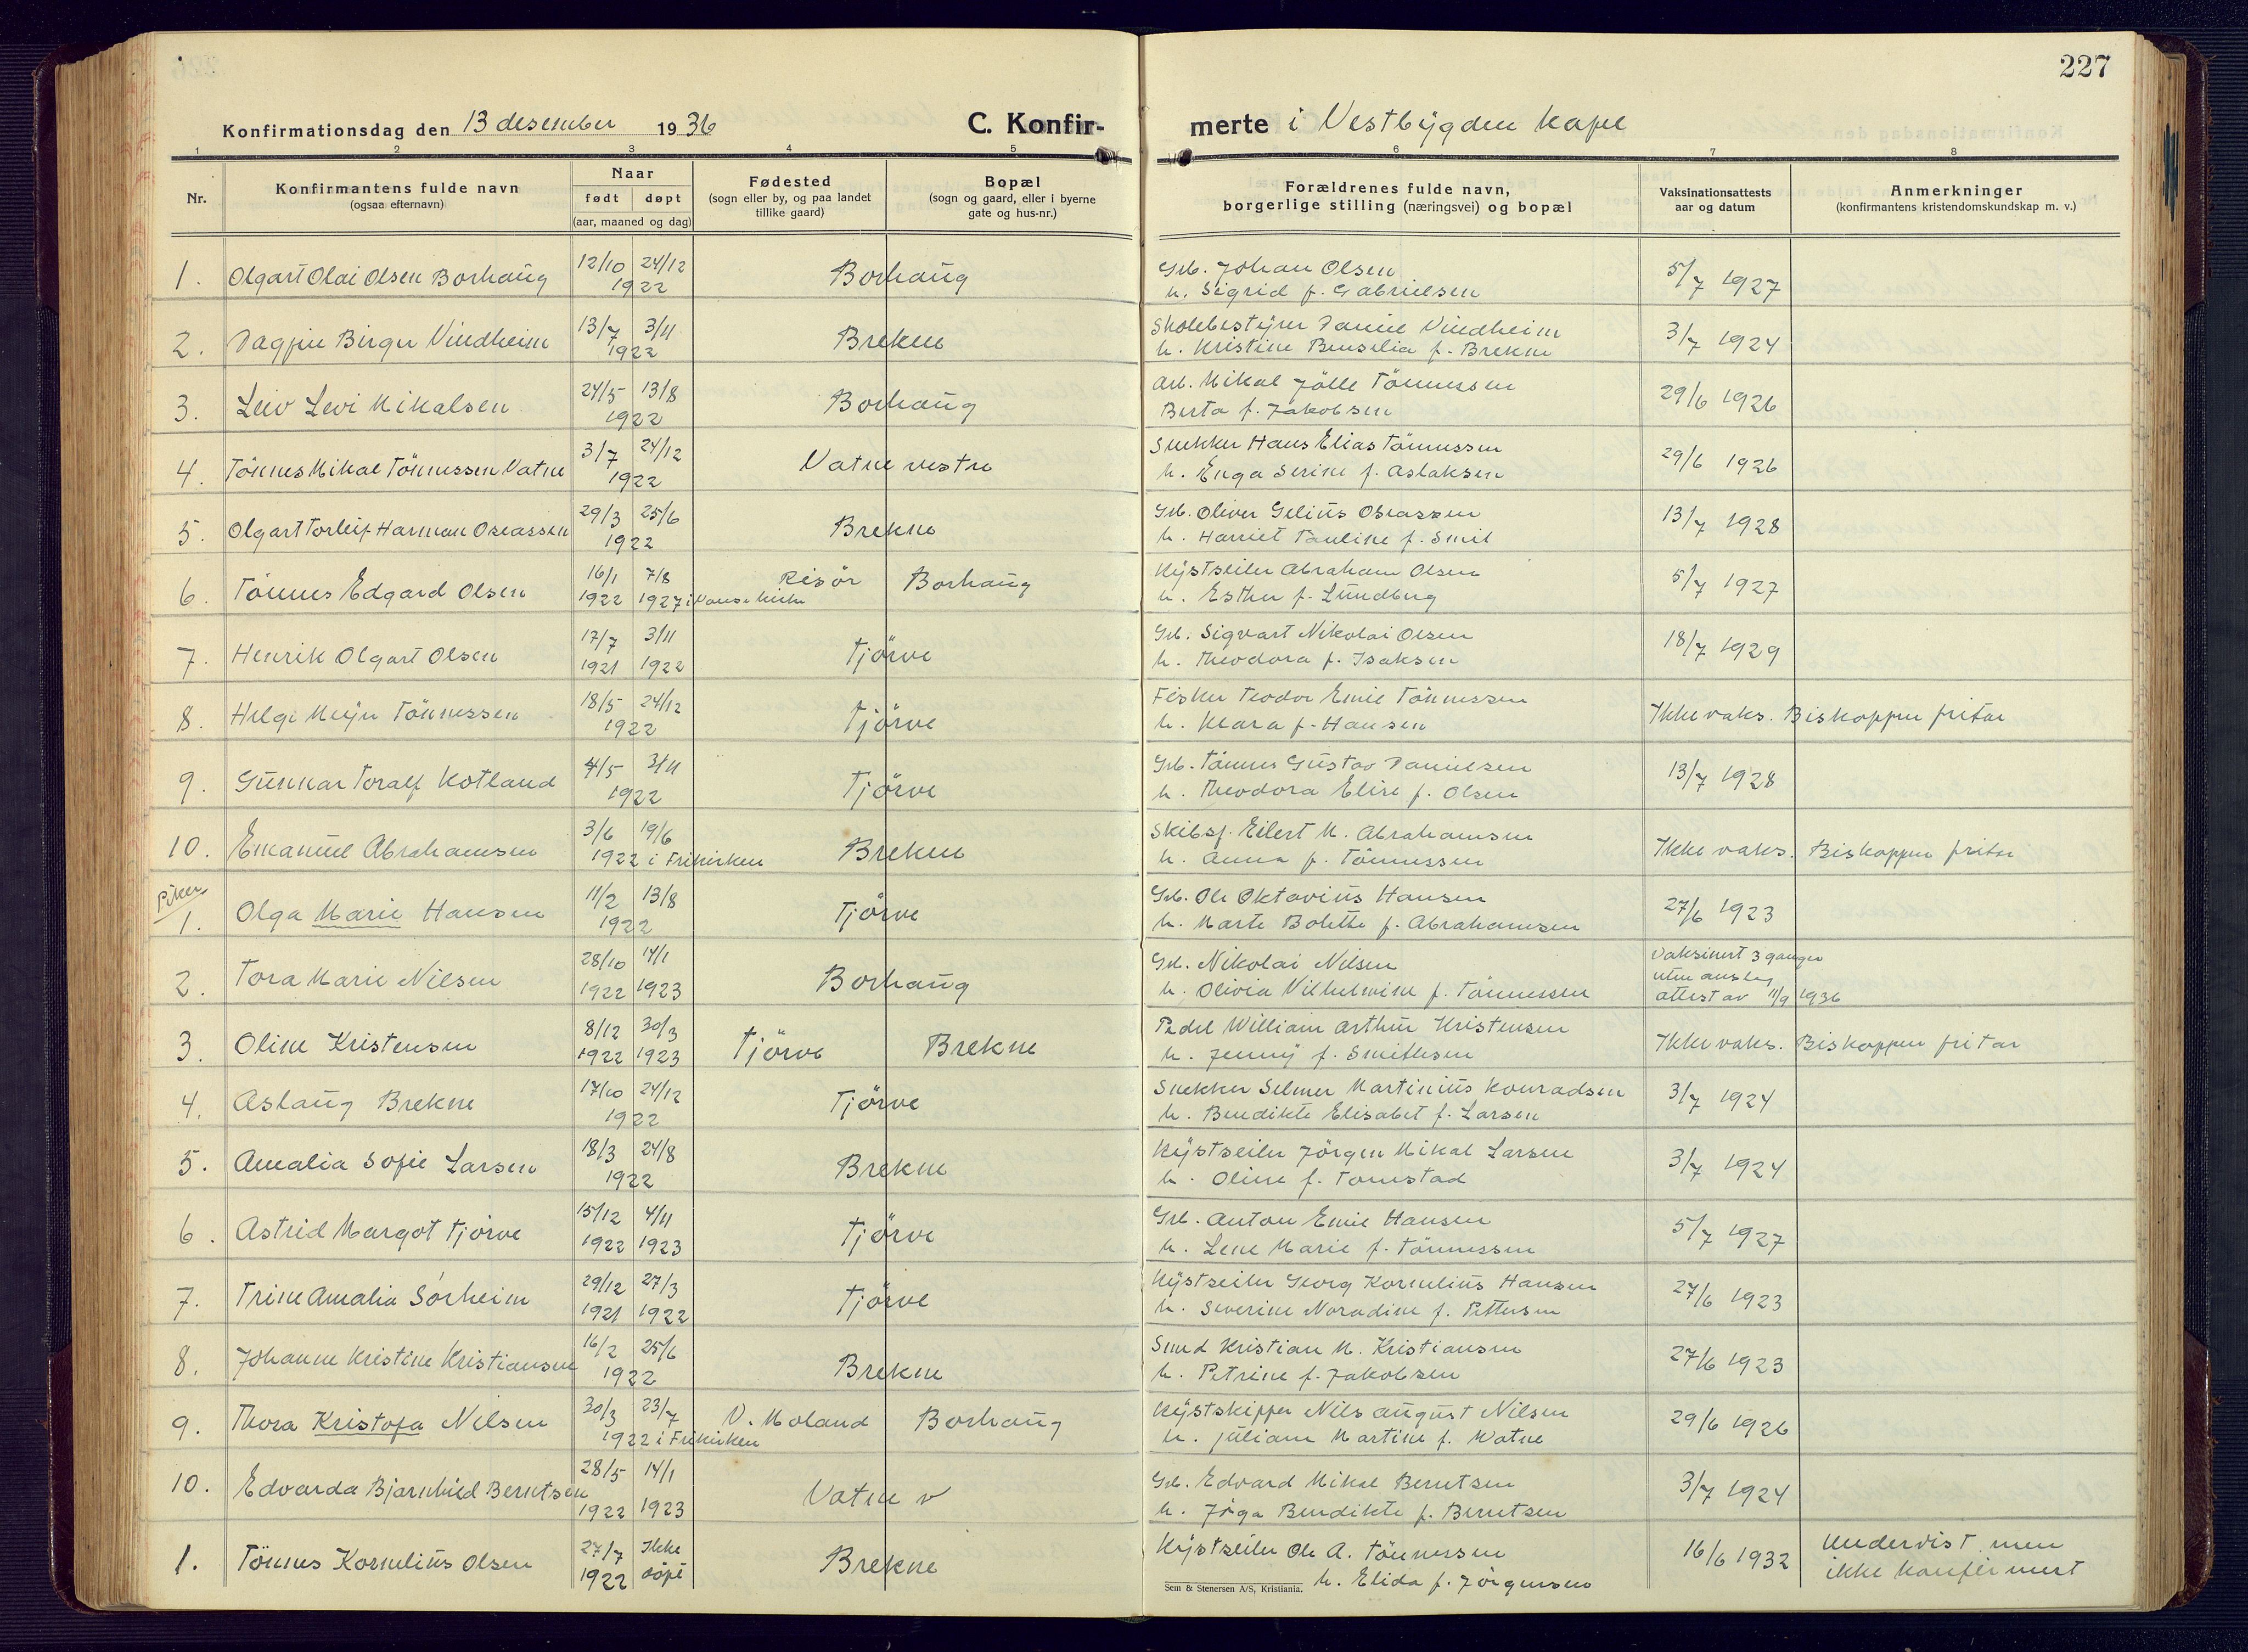 227
Konfirmationsdag den 13 desember 1936 C. Konfirmerte i Vestbygden kapel
1 2 3 4 5 6 7 8
Nr. Konfirmantens fulde navn (ogsaa efternavn) Naar født døpt (aar, maaned og dag) Fødested (sogn eller by, og paa landet tillike gaard) Bopæl (sogn og gaard, eller i byerne gate og hus-nr.) Forældrenes fulde navn, borgerlige stilling (næringsvei) og bopæl Vaksinationsattests aar og datum Anmerkninger (konfirmantens kristendomskundskap m. v.)
1. Olgart Olai Olsen Borhaug 12/10 24/12 1922 Borhaug Grb. Johan Olsen h. Sigrid f. Gabrielsen 5/7 1927
2. Dagfin Birger Vindheim 13/7 3/11 1922 Brekne Skolebestyrer Daniel Vindheim h. Kristine Benselia f. Brekne 3/7 1924
3. Leiv Levi Mikalsen 24/5 13/8 1922 Borhaug Arb. Mikal Jölle Tönnessen Berta f. Jakobsen 29/6 1926
4. Tönnes Mikal Tönnessen Vatne 3/7 24/12 1922 Vatne vestre Snekker Hans Elias Tönnessen h. Enga Serine f. Aslaksen 29/6 1926
5. Olgart Torleif Harman Oseassen 29/3 25/6 1922 Brekne Grb. Oliver Gelius Oseassen h. Harriet Pauline f. Smit 13/7 1928
6. Tönnes Edgard Olsen 16/1 1922 7/8 1927 i Vanse kirke Risör Borhaug Kystseiler Abraham Olsen h. Esther f. Lundberg 5/7 1927
7. Henrik Olgart Olsen 17/7 1921 3/11 1922 Tjörve Grb. Sigvart Nikolai Olsen h. Theodora f. Isaksen 18/7 1929
8. Helge Meyer Tönnessen 18/5 24/12 1922 Tjörve Fisker Teodor Emil Tönnessen h. Klara f. Hansen Ikke vaks. Biskoppen fritar
9. Gunnar Toralf Kotland 4/5 3/11 1922 Tjörve Grb. Tönnes Gustav Danielsen h. Theodora Elise f. Olsen 13/7 1928
10. Emanuel Abrahamsen 3/6 19/6 1922 i Frikirken Brekne Skibsf. Eilert M. Abrahamsen h. Anna f. Tönnessen Ikke vaks. Biskoppen fritar
Piker
1. Olga Marie Hansen 11/2 13/8 1922 Tjörve Grb. Ole Oktavius Hansen h. Marte Bolette f. Abrahamsen 27/6 1923
2. Tora Marie Nilsen 28/10 1922 14/1 1923 Borhaug Grb. Nikolai Nilsen h. Olivia Vilhelmine f. Tönnessen Vaksinert 3 ganger uten anslag attest av 11/9 1936
3. Oline Kristensen 8/12 1922 30/3 1923 Tjörve Brekne Pedel William Arthur Kristensen h. Jenny f. Smithsen Ikke vaks. Biskoppen fritar
4. Aslaug Brekne 17/10 24/12 1922 Tjörve Snekker Selmer Martinius Konradsen h. Bendikte Elisabet f. Larsen 3/7 1924
5. Amalia Sofie Larsen 18/3 24/8 1922 Brekne Kystseiler Jörgen Mikal Larsen h. Oline f. Tomstad 3/7 1924
6. Astrid Margot Tjörve 15/12 1922 4/11 1923 Tjörve Grb. Anton Emil Hansen h. Lene Marie f. Tönnessen 5/7 1927
7. Trine Amalia Sörheim 29/12 1921 27/3 1922 Tjörve Kystseiler Georg Kornelius Hansen h. Severine Noradine f. Pettersen 27/6 1923
8. Johanne Kristine Kristiansen 16/2 25/6 1922 Brekne Smed Kristian M. Kristiansen h. Petrine f. Jakobsen 27/6 1923
9. Thora Kristofa Nilsen 30/3 23/7 1922 i Frikirken V. Moland Borhaug Kystskipper Nils August Nilsen h. Juliane Martine f. Watne 29/6 1926
10. Edvarda Bjarnhild Berntsen 28/5 1922 14/1 1923 Vatne v Grb. Edvard Mikal Berntsen h. Jörga Bendikte f. Berntsen 3/7 1924
1. Tönnes Kornelius Olsen 27/7 1922 Ikke döpt Brekne Kystseiler Ole A. Tönnessen h. Elida f. Jörgensen 16/6 1932 Undervist men ikke konfirmert
Sem & Stenersen A/S, Kristiania.